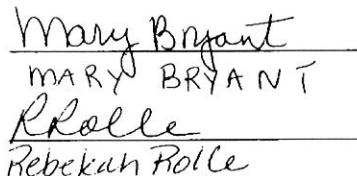 Mary Bryant
MARY BRYANT
RRolle
Rebekah Rolle